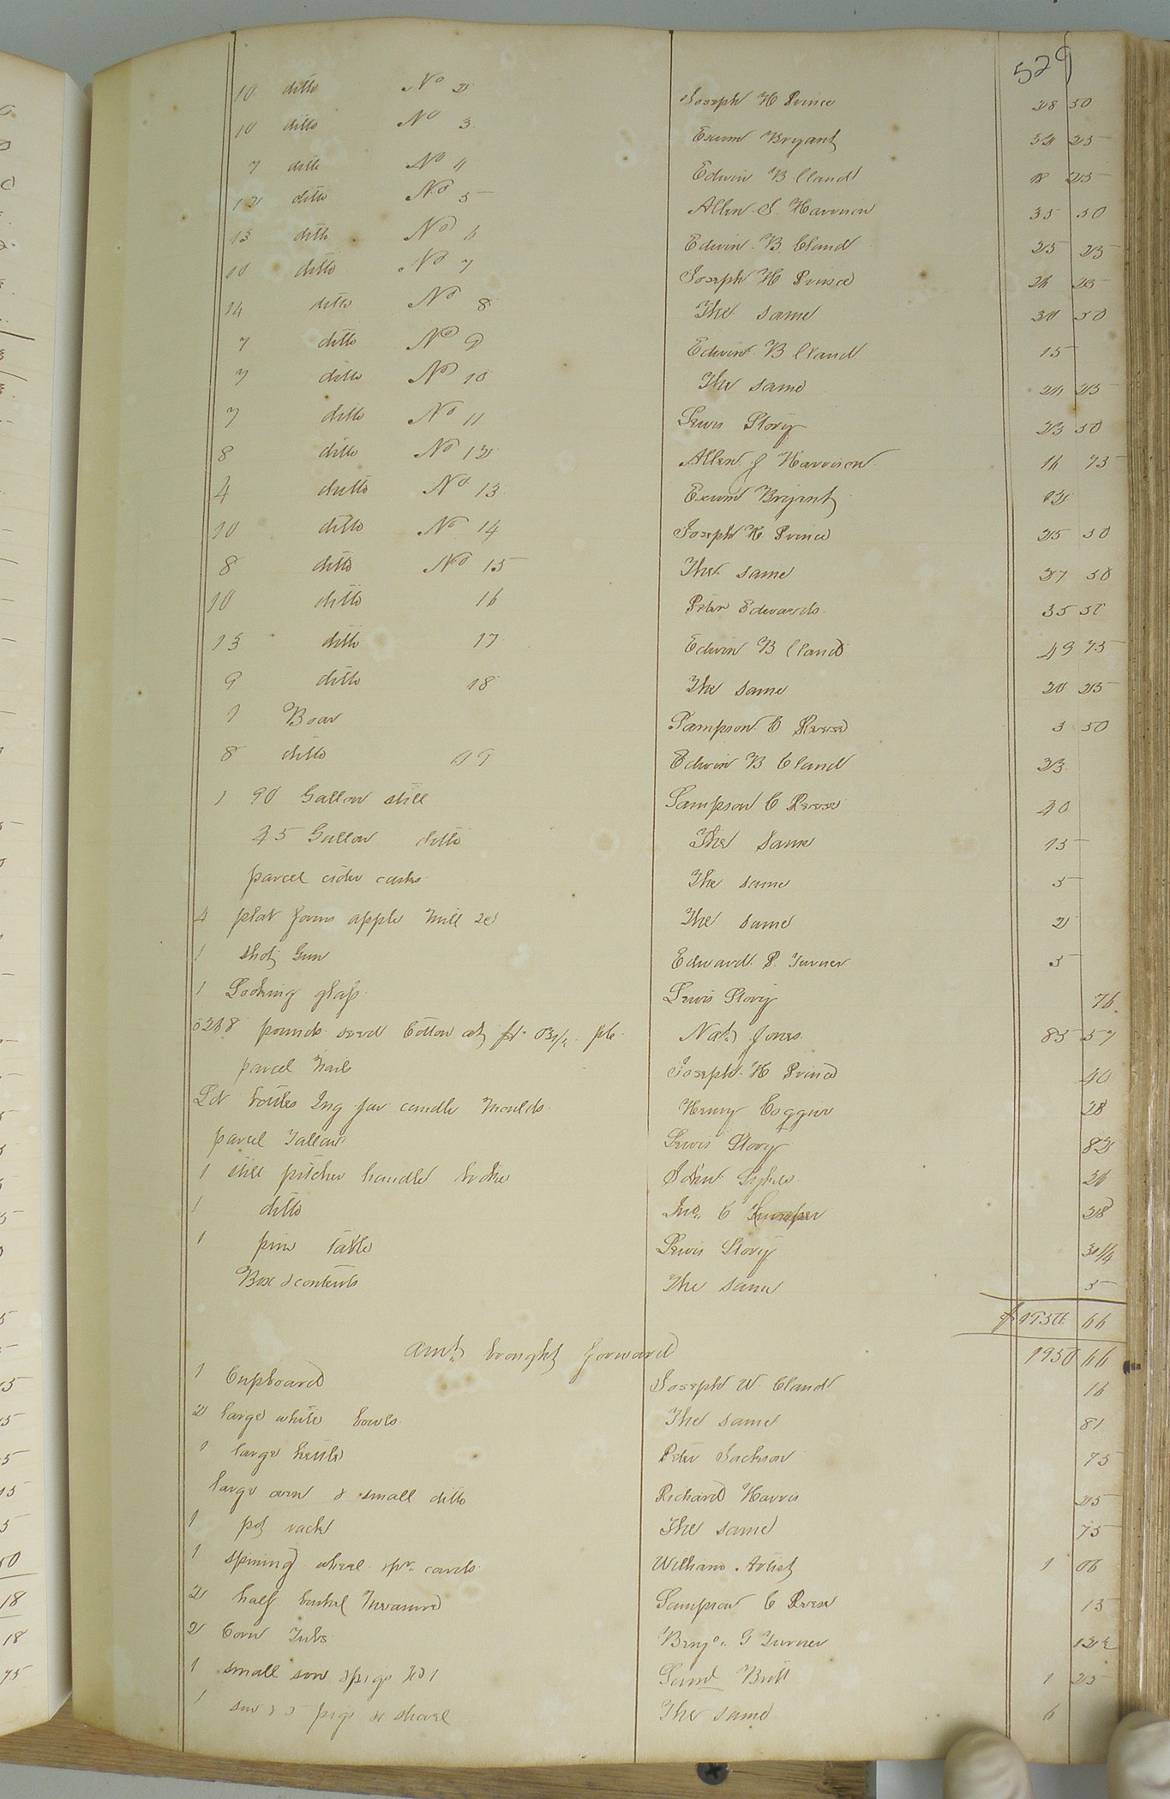 529
10 ditto No 2 Joseph H Prince 28 50
10 ditto No 3 Exum Bryant 25
7 ditto No 4 Edwin B Claud 18 25
12 ditto No 5 Allen J. Harrison 35 50
13 ditto No 6 Edwin B. Claud 25 25
10 ditto No 7 Joseph H Prince 26 25
14 ditto No 8 The same 30 50
7 ditto No 9 Edwin B Claud 15
7 ditto No 10 The same 25
7 ditto No 11 Lewis Story 23 50
8 ditto No 12 Allen J Harrison 16 75
4 ditto No 13 Exum Bryant
10 ditto No 14 Joseph H Prince 25 50
8 ditto No 15 The same 27 50
10 ditto 16 Peter Edwards 35 50
13 ditto 17 Edwin B Claud 49 75
9 ditto 18 The same 20 25
1 Boar Sampson C Reese 3 50
8 ditto 19 Edwin B. Claud 23
1 90 Gallon still Sampson C Reese 40
45 Gallon ditto The same 15
parcel cider casks The same 5
4 plat forms apple mill The same 2
1 shot Gun Edward P. Turner 5
1 Looking glass Lewis Story 76
pounds seed Cotton at pr Nat Jones 85 57
parcel Nails Joseph H Prince 40
Lot bottles Jug jar candle moulds Henry Coggur 28
parcel Tallow Lewis Story 82
1 still pitcher handle broke John Sykes 26
1 ditto Jno. C 28
1 pine table Lewis Story 30 1/4
Box & contents The same 5
$ 1950 66
amt brought forward 1950 66
1 Cupboard Joseph W. Claud 16
2 large white bowls The same 81
1 large kettle Peter Jackson 75
large oven & small ditto Richard Harris 25
1 pot rack The same 75
1 spining wheel pr. cards William Artist 1 06
2 half bushel measures Sampson C Reese 15
2 Corn Tubs Benjn. G Turner 12 1/2
1 small sow & pigs No 1 Britt 1 25
1 sow & 5 pigs The same 6